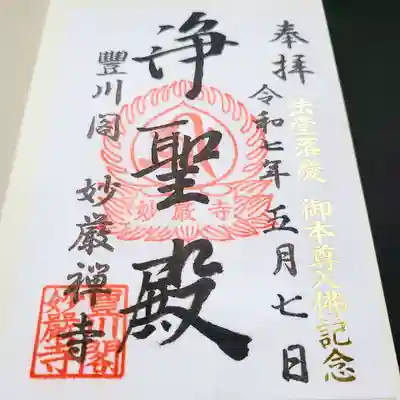 法堂落慶 御本尊入佛記念
奉拝
令和七年五月七日
浄聖殿
豐川閣 妙厳禅寺
妙嚴寺
豐川閣
妙嚴寺